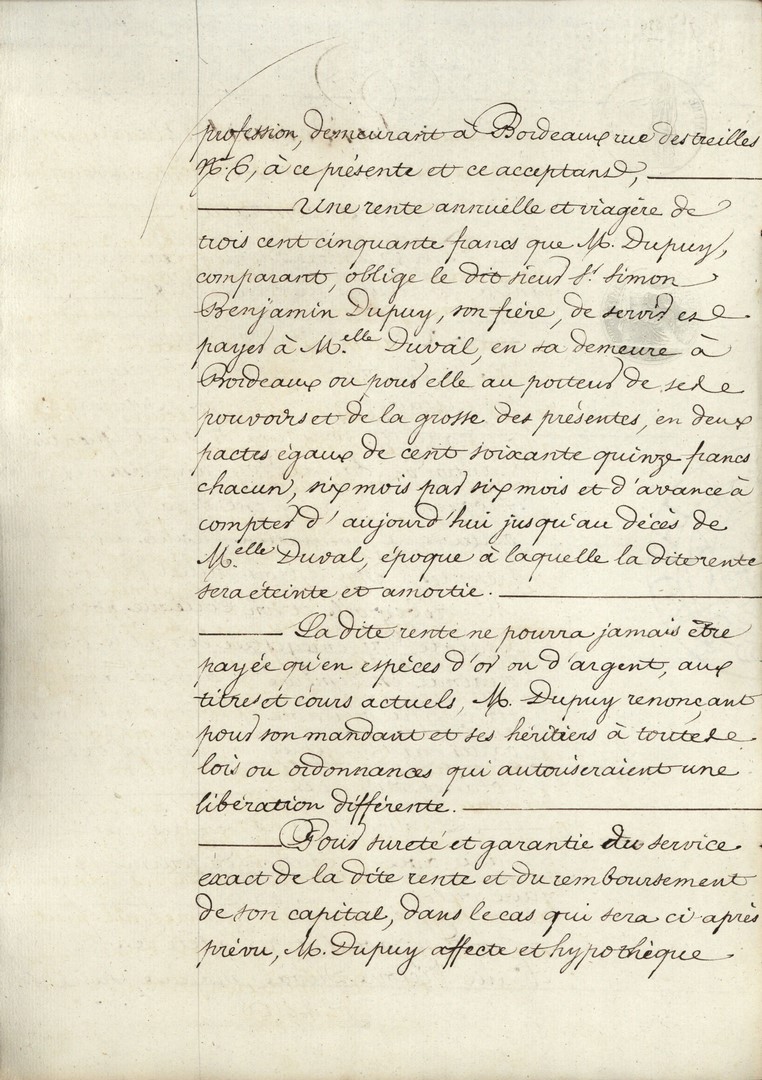 profession, demeurant à Bordeaux rue des treilles
N.º 6, à ce présente et ce acceptant,
Une rente annuelle et viagère de
trois cent cinquante francs que M. Dupuy,
comparant, oblige le dit sieur S.t Simon
Benjamin Dupuy, son frère, de servir et
payer à M.elle Duval, en sa demeure à
Bordeaux ou pour elle au porteur de ses
pouvoirs et de la grosse des présentes, en deux
pactes égaux de cent soixante quinze francs
chacun, six mois par six mois et d'avance à
compter d'aujourd'hui jusqu'au décès de
M.elle Duval, époque à laquelle la dite rente
sera éteinte et amortie.
La dite rente ne pourra jamais être
payée qu'en espèces d'or ou d'argent, aux
titres et cours actuels, M. Dupuy renonçant
pour son mandant et ses héritiers à toutes
lois ou ordonnances qui autoriseraient une
libération différente.
Pour sureté et garantie du service
exact de la dite rente et du remboursement
de son capital, dans le cas qui sera ci après
prévu, M. Dupuy affecte et hypothèque